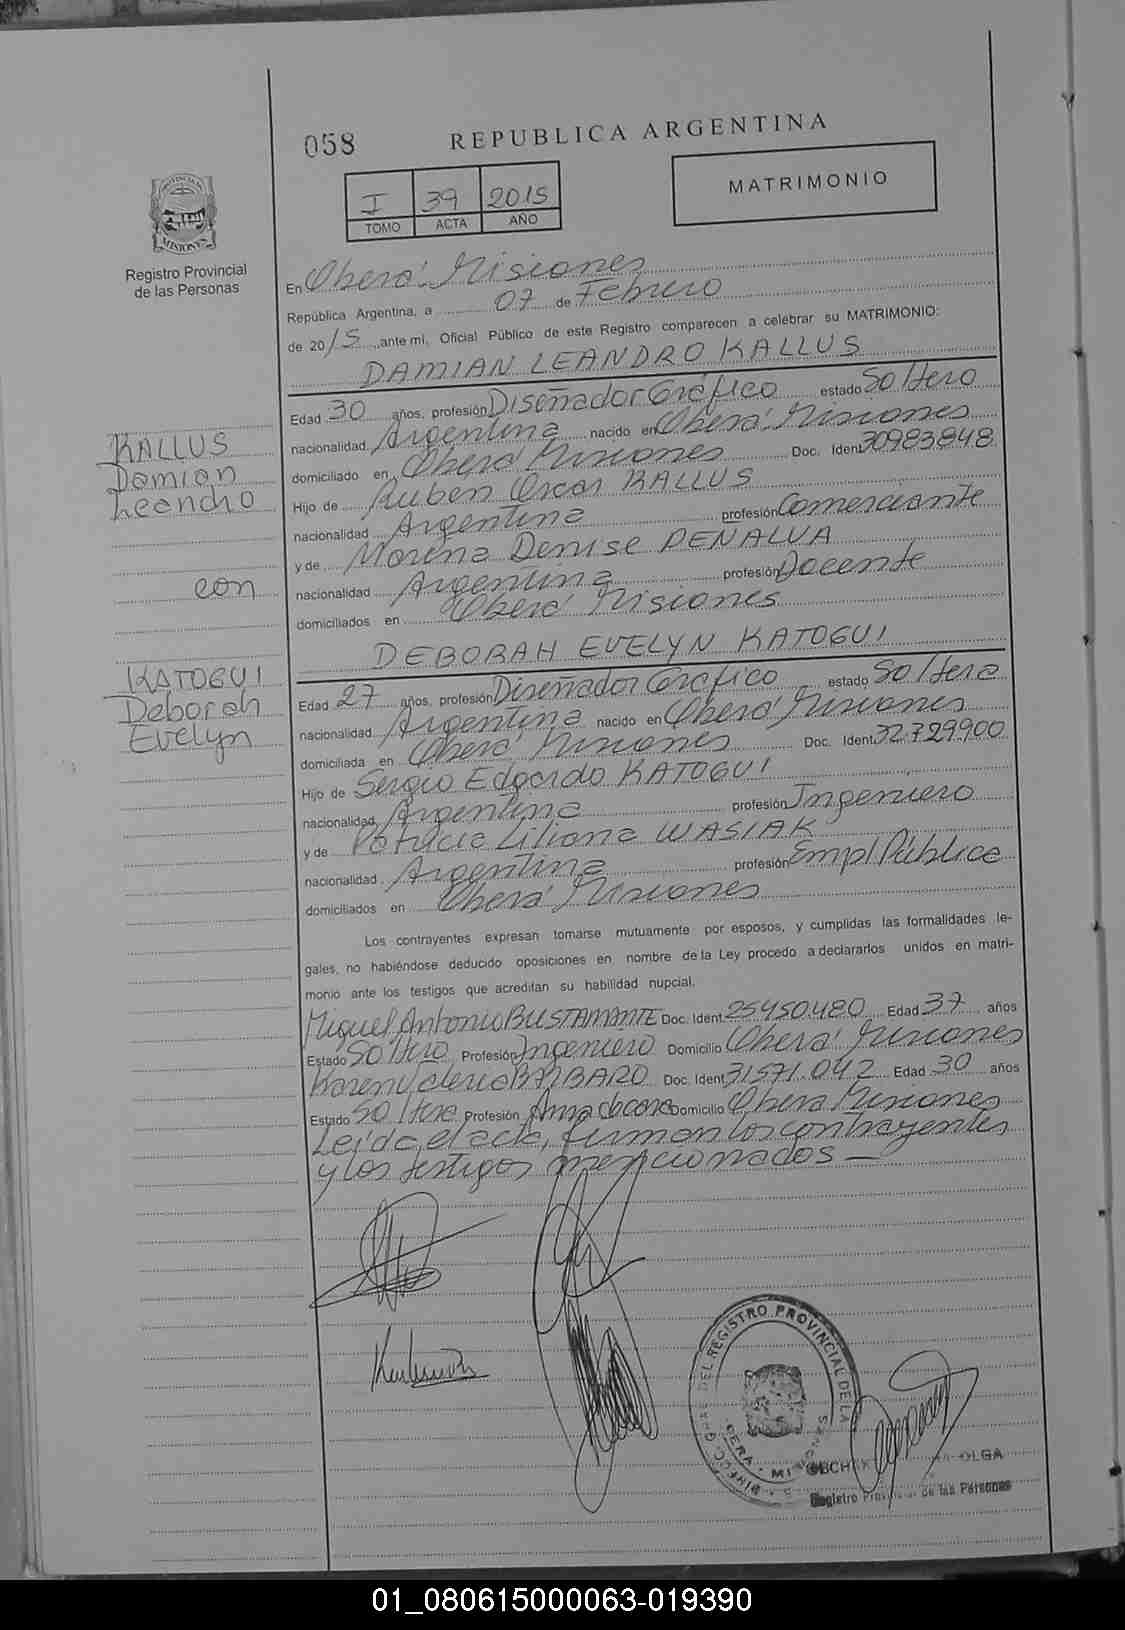 058
REPUBLICA ARGENTINA
I 39 2015
TOMO ACTA AÑO
MATRIMONIO
PROVINCIA DE
MISIONES
Registro Provincial
de las Personas
En Oberá Misiones
República Argentina, a 07 de Febrero
de 2015, ante mi, Oficial Público de este Registro comparecen a celebrar su MATRIMONIO:
DAMIAN LEANDRO KALLUS
Edad 30 años, profesión Diseñador Gráfico estado Soltero
nacionalidad Argentina nacido en Oberá Misiones
domiciliado en Oberá Misiones Doc. Ident 30983.848
Hijo de Ruben Oscar KALLUS
nacionalidad Argentina profesión Comerciante
y de Morena Denise PENALVA
nacionalidad Argentina profesión Docente
domiciliados en Oberá Misiones
KALLUS
Damian
Leandro
con
KATOGUI
Deborah
Evelyn
DEBORAH EVELYN KATOGUI
Edad 27 años, profesión Diseñador Gráfico estado Soltera
nacionalidad Argentina nacido en Oberá Misiones
domiciliada en Oberá Misiones Doc. Ident 32.729.900
Hijo de Sergio Edgardo KATOGUI
nacionalidad Argentina profesión Ingeniero
y de Patricia Liliana WASIAK
nacionalidad Argentina profesión Empl Pública
domiciliados en Oberá Misiones
Los contrayentes expresan tomarse mutuamente por esposos, y cumplidas las formalidades le-
gales, no habiéndose deducido oposiciones en nombre de la Ley procedo a declararlos unidos en matri-
monio ante los testigos que acreditan su habilidad nupcial.
Miguel Antonio BUSTAMANTE Doc. Ident. 25450.480 Edad 37 años
Estado Soltero Profesión Ingeniero Domicilio Oberá Misiones
Karen Valeria BARBARO Doc. Ident 31571.042 Edad 30 años
Estado Soltera Profesión Domicilio Oberá Misiones
Leída el acta, firman los contrayentes
y los testigos mencionados
DEL REGISTRO PROVINCIAL DE LA
OLGA
Registro Provincial de las Personas
01_080615000063-019390